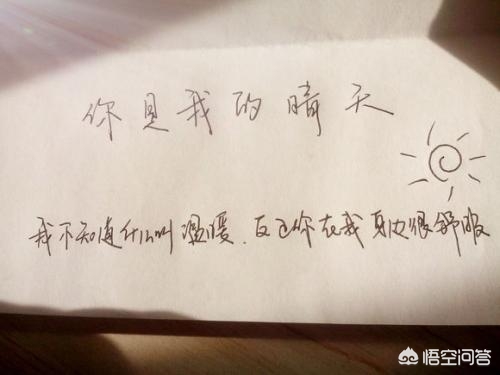 你是我的晴天
我不知道什么叫温暖.反正你在我身边很舒服
悟空问答